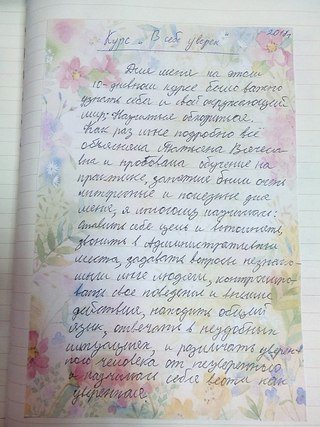 2017г.
Курс „В себе уверен"
Для меня на этом
10-дневном курсе было важно
узнать себя и свой окружающий
мир: Научиться общаться.
Как раз мне подробно всё
объяснила Татьяна Вячесла-
вна и пробовала обучение на
практике, занятие были очень
интересные и полезные для
меня, я многому научилась:
ставить себе цель и выполнять,
звонить в Административные
места, задавать вопросы незнако-
мыми мне людьми, контролиро-
вать свое поведение и внешние
действия, находить общий
язык, отвечать в неудобных
ситуациях, и различать уверен-
ного человека от неуверенного
и научилась себя вести как
уверенная.